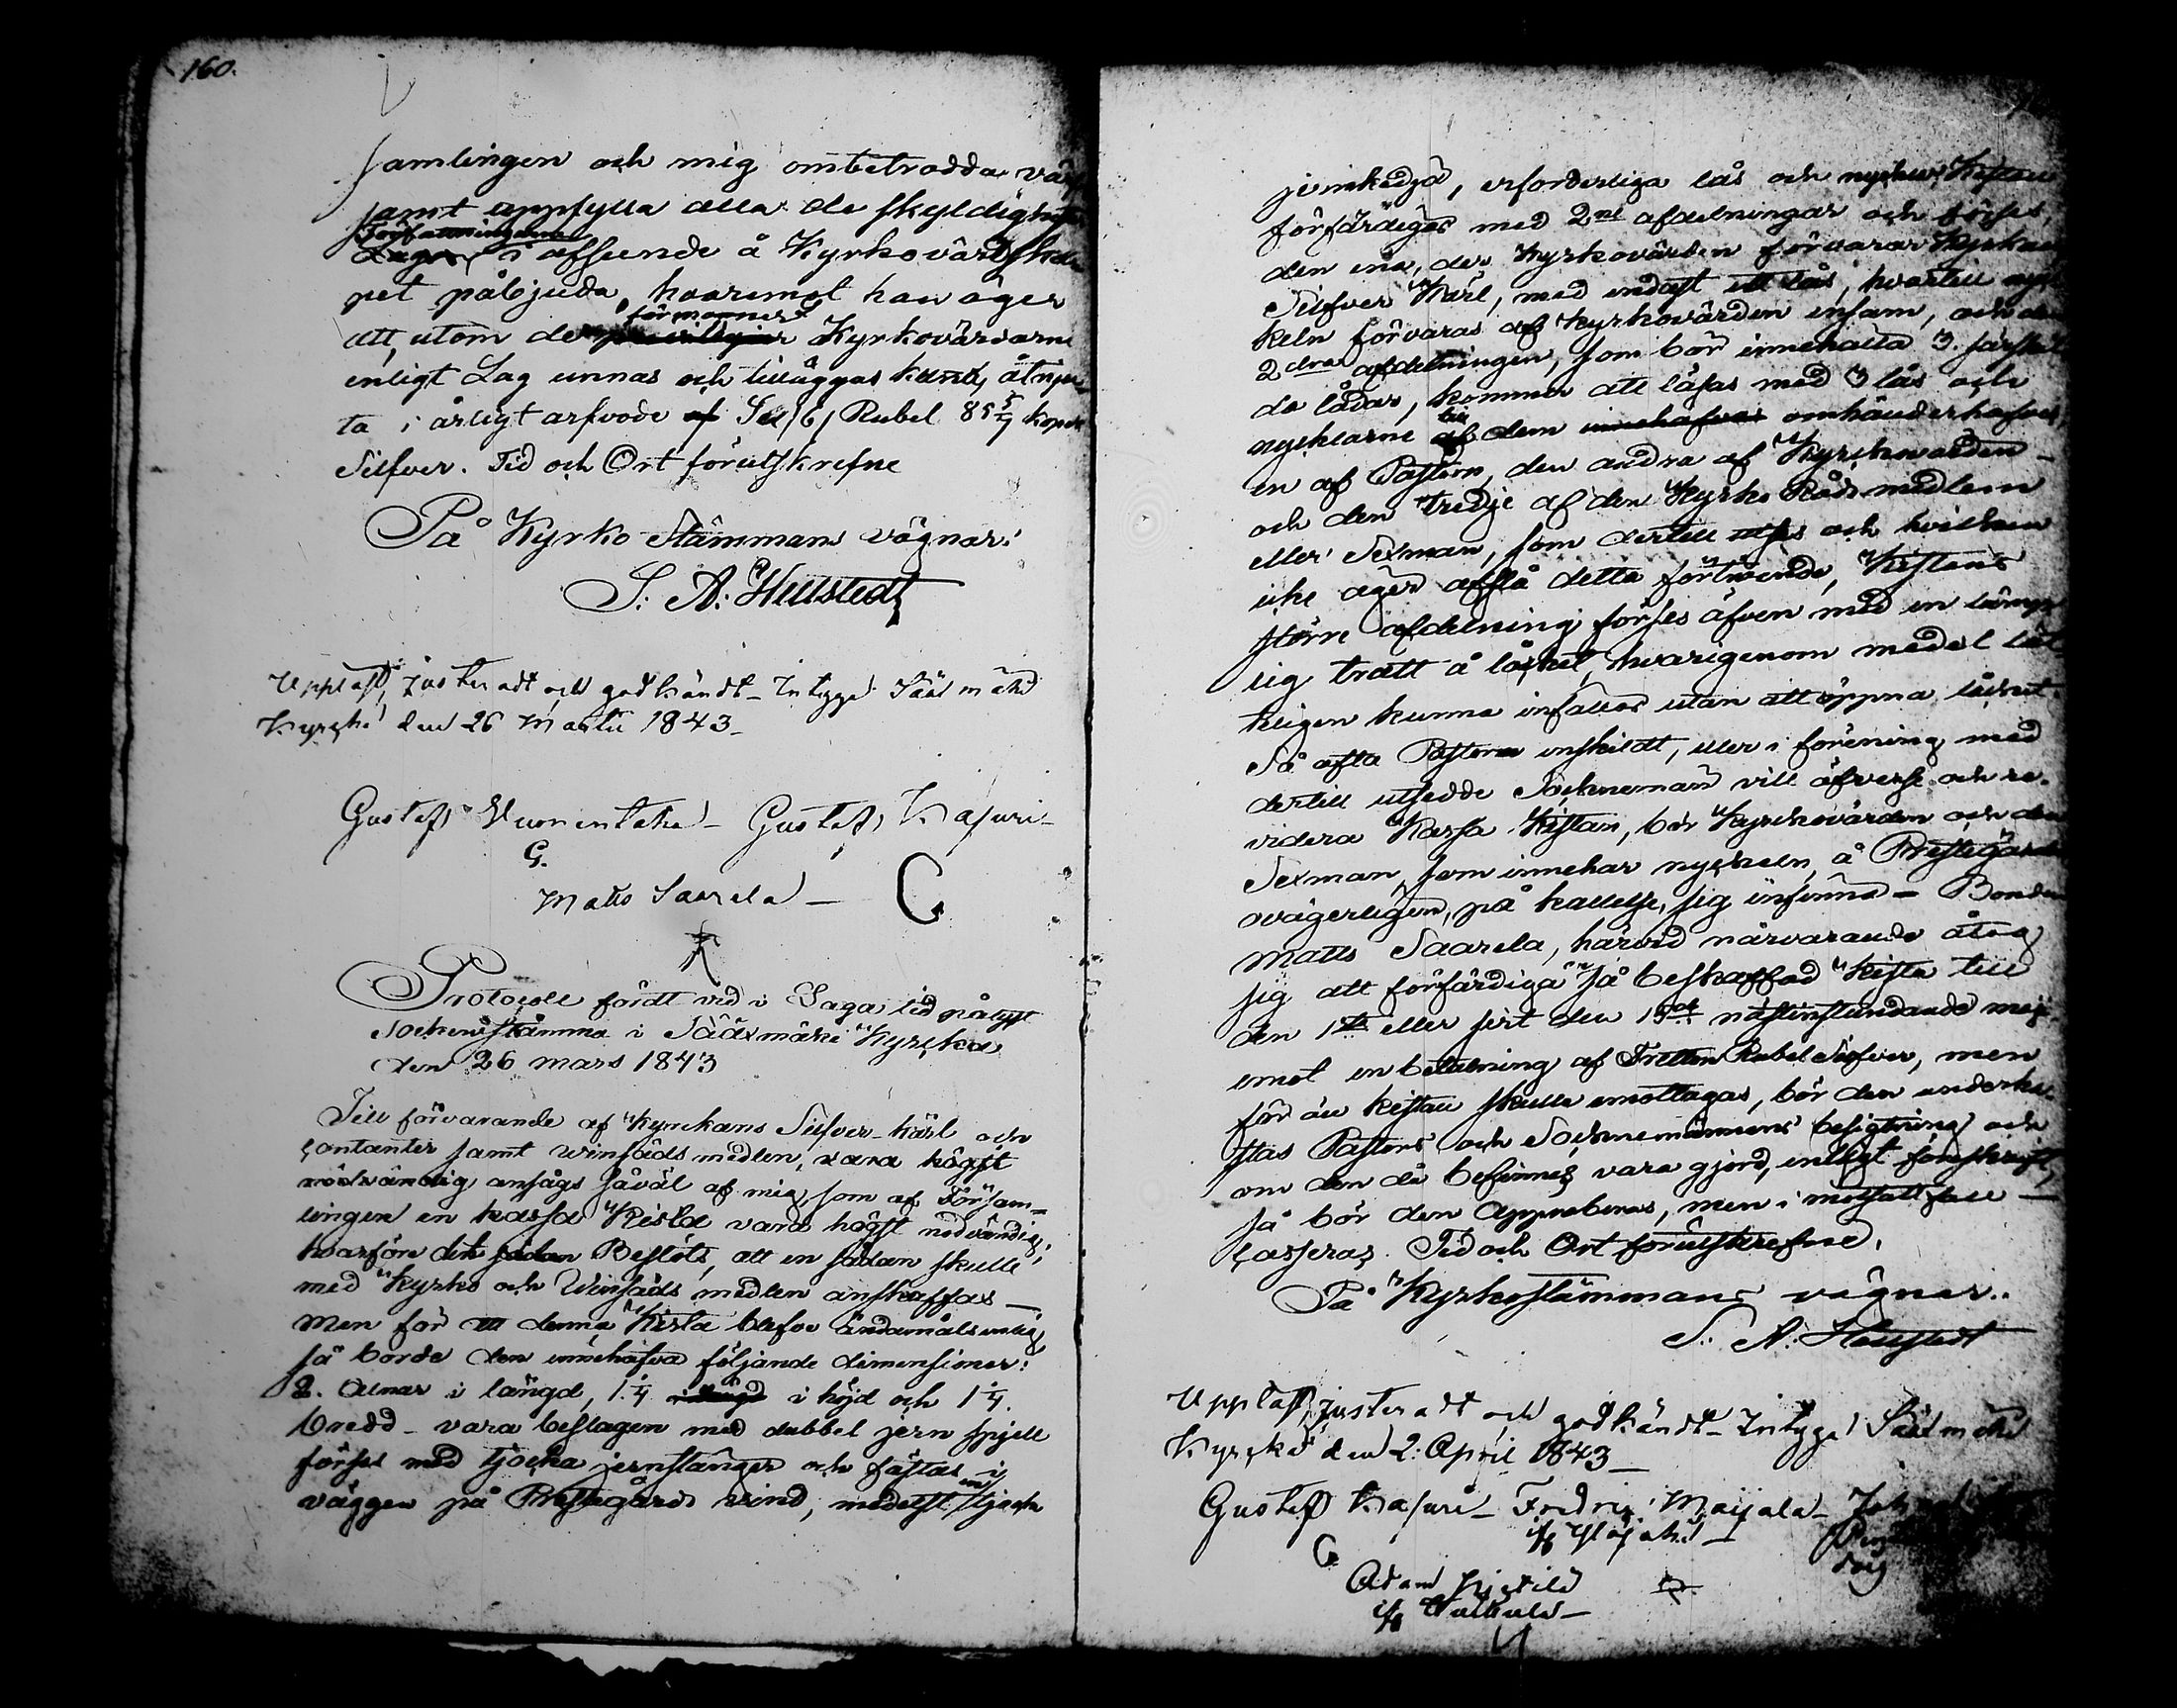 160.
samlingen och mig ombetrodda
samt uppfylla alla de skyldigheter
Författningarne
Lagen i afseende å Kyrkovärdska-
pet påbjuda, hvaremot han äger
förmoner
att, utom de privilegier Kyrkovärdarne
enligt Lag unnas och tilläggas kand, åtnju-
ta i årligt arfvode af Sex /6/ Rubel 85 5/7 kopek
Silfver. Tid och Ort förutskrefne
På Kyrko-Stämmans vägnar:
S. A. Hellstedt
Uppläst, justeradt och godkändt_ Intyga Sääxmäki
Kyrcka den 26 Martii 1843_
Gustaf Vuorentaka_ Gustaf Kasuri_
G.
Matts Saarela _
Protocoll fördt vid i Laga tid pålyst
Sockenstämma i Sääxmäki Kyrcka
den 26 mars 1843
Till förvarande af Kyrckans Silfver-kärl och
contanter samt winsäds medlen, vara högst
nödvändig ansågs såväl af mig som af Försam-
lingen en kassa Kista vara högst nödvändig;
hvarföre det sådan Beslöts, att en sådan skulle
med Kyrko och Winsäds medlen anskaffas _
Men för att denna Kista blefve ändamålsenlig
så borde den innehafva följande dimensioner:
2. Alnar i längd, 1 1/4 i längd i höjd och 1 1/4.
bredd _ vara beslagen med dubbel jern spjell
förses med tjocka jernstänger och fästas i
väggen på Prestegårds vind, medelst en tjock
jernkedja, erforderliga lås och nycklar Kistan
förfärdigas med 2ne afdelningar och förses
den ena, der Kyrkovärden förvarar Kyrkans
Silfver Kärl, med endast ett lås, hvartill nyc-
keln förvaras af Kyrkovärden ensam, och den
2dra afdelningen, som bör innehålla 3. särskil-
da lådor, kommer att låsas med 3 lås och
nycklarne till af dem innehafvas omhänderhafves,
en af Pastorn, den andra af Kyrckovärden _
och den tredje af den Kyrko Råds medlem
eller Sexman, som dertill utses och hvilken
icke äger afslå detta förtroende, Kistans
större afdelning förses äfven med en
lig tratt å låcket, hvarigenom medel
ligen kunna infällas utan att öppna låcket.
Så ofta Pastorn enskildt, eller i förening med
dertill utsedde Sockneman vill öfverse och re-
videra Kassa Kistan, bör Kyrckovärden och den
Sexman, som innehar nyckeln, å Prestegården
ovägerligen, på kallelse, sig infinna _ Bonden
Matts Saarela, härvid närvarande åtog
sig att förfärdiga en så beskaffad Kista till
den 1ste eller sist den 15de nästinstundande maji
emot en betalning af Fretton Rubel Silfver, men
för än kistan skulle emottagas, bör den underka-
stas Pastors och Sockenemännens besigtning och
om den då befinnes vara gjord, enligt föreskrift,
så bör den Approberas, men i motsatt fall _
casseras. Tid och Ort förutskrefne.
På Kyrkostämmans vägnar:
S. A. Hellstedt
Uppläst, justeradt och godkändt_ Intyga Sääxmäki
Kyrcka den 2. April 1843_
Gustaf Kasuri_ Fredric Maijala_
Adam